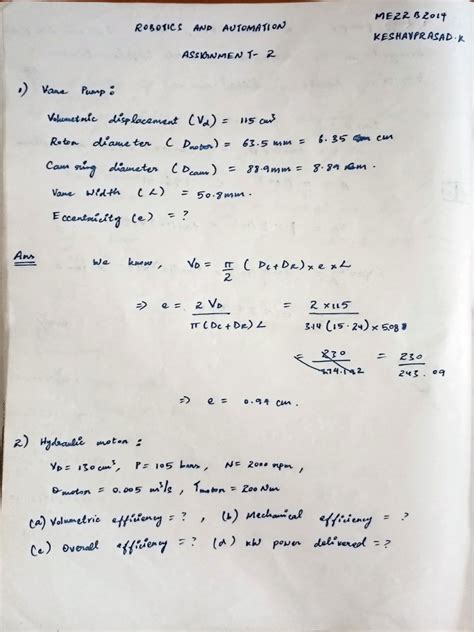 ME22B2014
ROBOTICS AND AUTOMATION
KESHAVPRASAD.K
ASSIGNMENT-2
1) Vane Pump:
Volumetric displacement (Vd) = 115 cm³
Rotor diameter (Drotor) = 63.5 mm = 6.35 cm
Cam ring diameter (Dcam) = 88.9mm = 8.89 cm.
Vane Width (L) = 50.8mm.
Eccentricity (e) = ?
Ans We know, VD = π/2 (Dc+DR) x e x L
⇒ e = 2VD / π(Dc+DR)L = 2x115 / 3.14(15.24)x5.08
= 230 / = 230 / 243.09
⇒ e = 0.94 cm.
2) Hydraulic motor:
VD = 130cm³, P = 105 bars, N = 2000 rpm,
Qmotor = 0.005 m³/s, Tmotor = 200 Nm
(a) Volumetric efficiency = ?, (b) Mechanical efficiency = ?
(c) Overall efficiency = ? (d) kW power delivered = ?